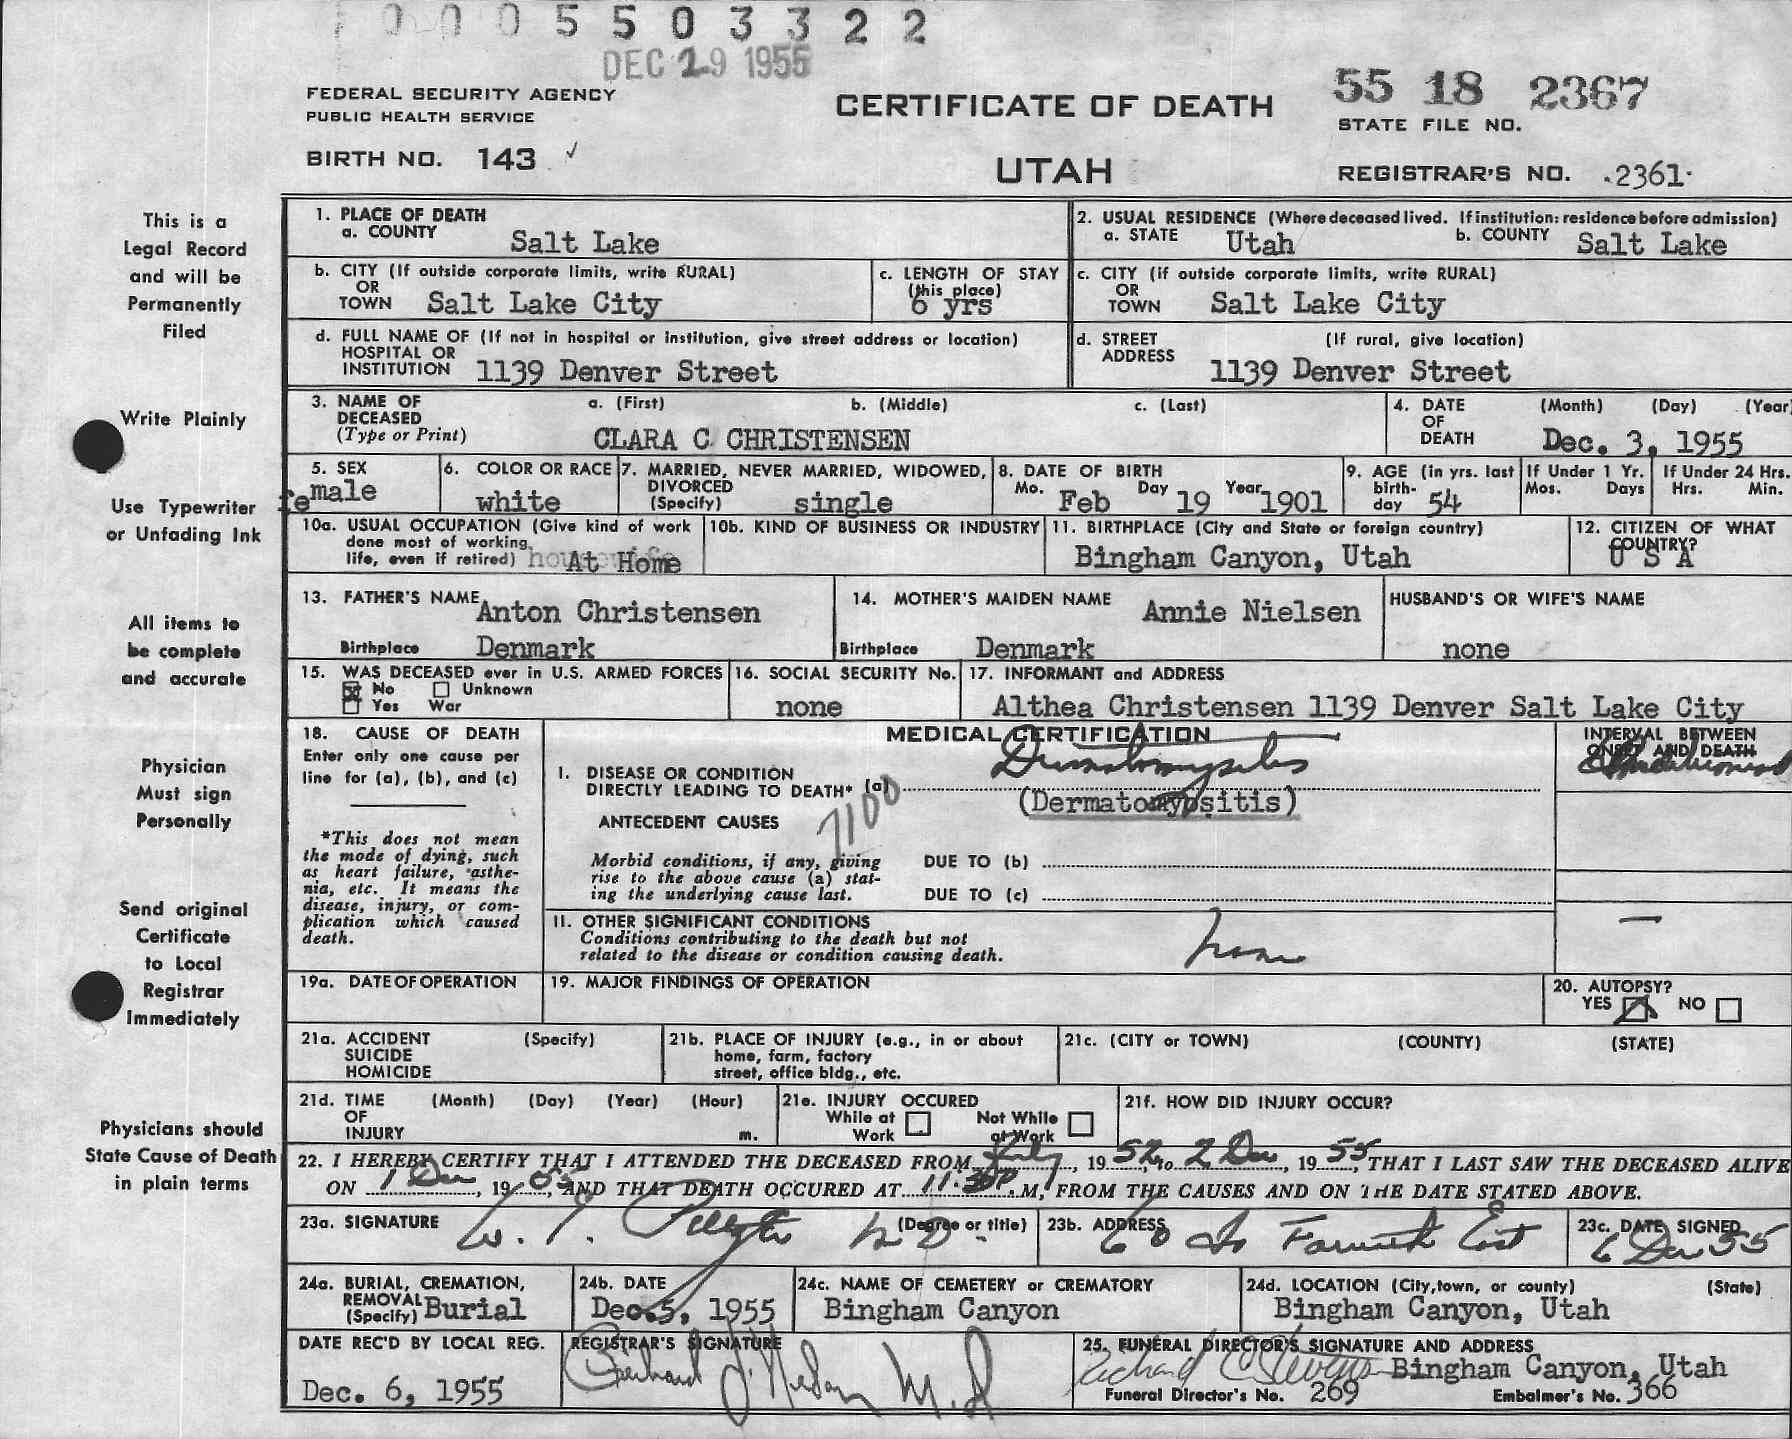 0005503322
DEC 29 1955
FEDERAL SECURITY AGENCY
PUBLIC HEALTH SERVICE
BIRTH NO. 143 ✓
CERTIFICATE OF DEATH
UTAH
55 18 2367
STATE FILE NO.
REGISTRAR'S NO. .2361.
This is a
Legal Record
and will be
Permanently
Filed
Write Plainly
Use Typewriter
or Unfading Ink
All items to
be complete
and accurate
Physician
Must sign
Personally
Send original
Certificate
to Local
Registrar
Immediately
Physicians should
State Cause of Death
in plain terms
1. PLACE OF DEATH
a. COUNTY Salt Lake
2. USUAL RESIDENCE (Where deceased lived. If institution: residence before admission)
a. STATE Utah b. COUNTY Salt Lake
b. CITY (If outside corporate limits, write RURAL)
OR
TOWN Salt Lake City
c. LENGTH OF STAY
(this place)
6 yrs
c. CITY (if outside corporate limits, write RURAL)
OR
TOWN Salt Lake City
d. FULL NAME OF (If not in hospital or institution, give street address or location)
HOSPITAL OR
INSTITUTION 1139 Denver Street
d. STREET (If rural, give location)
ADDRESS
1139 Denver Street
3. NAME OF a. (First) b. (Middle) c. (Last)
DECEASED
(Type or Print) CLARA C CHRISTENSEN
4. DATE (Month) (Day) (Year)
OF
DEATH Dec. 3, 1955
5. SEX
female
6. COLOR OR RACE
white
7. MARRIED, NEVER MARRIED, WIDOWED,
DIVORCED
(Specify) single
8. DATE OF BIRTH
Mo. Feb Day 19 Year 1901
9. AGE (in yrs. last
birth-
day 54
If Under 1 Yr.
Mos. Days
If Under 24 Hrs.
Hrs. Min.
10a. USUAL OCCUPATION (Give kind of work
done most of working
life, even if retired) At Home
10b. KIND OF BUSINESS OR INDUSTRY
11. BIRTHPLACE (City and State or foreign country)
Bingham Canyon, Utah
12. CITIZEN OF WHAT
COUNTRY?
U S A
13. FATHER'S NAME Anton Christensen
Birthplace Denmark
14. MOTHER'S MAIDEN NAME Annie Nielsen
Birthplace Denmark
HUSBAND'S OR WIFE'S NAME
none
15. WAS DECEASED ever in U.S. ARMED FORCES
No Unknown
Yes War
16. SOCIAL SECURITY No.
none
17. INFORMANT and ADDRESS
Althea Christensen 1139 Denver Salt Lake City
18. CAUSE OF DEATH
Enter only one cause per
line for (a), (b), and (c)
*This does not mean
the mode of dying, such
as heart failure, asthe-
nia, etc. It means the
disease, injury, or com-
plication which caused
death.
MEDICAL CERTIFICATION
I. DISEASE OR CONDITION Dermatomyositis
DIRECTLY LEADING TO DEATH* (a)
(Dermatomyositis)
7100
ANTECEDENT CAUSES
Morbid conditions, if any, giving DUE TO (b)
rise to the above cause (a) stat-
ing the underlying cause last. DUE TO (c)
II. OTHER SIGNIFICANT CONDITIONS
Conditions contributing to the death but not
related to the disease or condition causing death.
none
INTERVAL BETWEEN
ONSET AND DEATH
—
19a. DATE OF OPERATION
19. MAJOR FINDINGS OF OPERATION
20. AUTOPSY?
YES NO
21a. ACCIDENT (Specify)
SUICIDE
HOMICIDE
21b. PLACE OF INJURY (e.g., in or about
home, farm, factory
street, office bldg., etc.
21c. (CITY or TOWN) (COUNTY) (STATE)
21d. TIME (Month) (Day) (Year) (Hour)
OF
INJURY m.
21e. INJURY OCCURED
While at Not While
Work at Work
21f. HOW DID INJURY OCCUR?
22. I HEREBY CERTIFY THAT I ATTENDED THE DECEASED FROM July, 19 52, to 2 Dec, 19 55, THAT I LAST SAW THE DECEASED ALIVE
ON 1 Dec, 19 55, AND THAT DEATH OCCURED AT 11:30P M, FROM THE CAUSES AND ON THE DATE STATED ABOVE.
23a. SIGNATURE W. T. M D. (Degree or title)
23b. ADDRESS 60 So Fourth East
23c. DATE SIGNED
6 Dec 55
24a. BURIAL, CREMATION,
REMOVAL
(Specify) Burial
24b. DATE
Dec. 5, 1955
24c. NAME OF CEMETERY or CREMATORY
Bingham Canyon
24d. LOCATION (City, town, or county) (State)
Bingham Canyon, Utah
DATE REC'D BY LOCAL REG.
Dec. 6, 1955
REGISTRAR'S SIGNATURE
M.D
25. FUNERAL DIRECTOR'S SIGNATURE AND ADDRESS
Richard C Stevens Bingham Canyon, Utah
Funeral Director's No. 269 Embalmer's No. 366